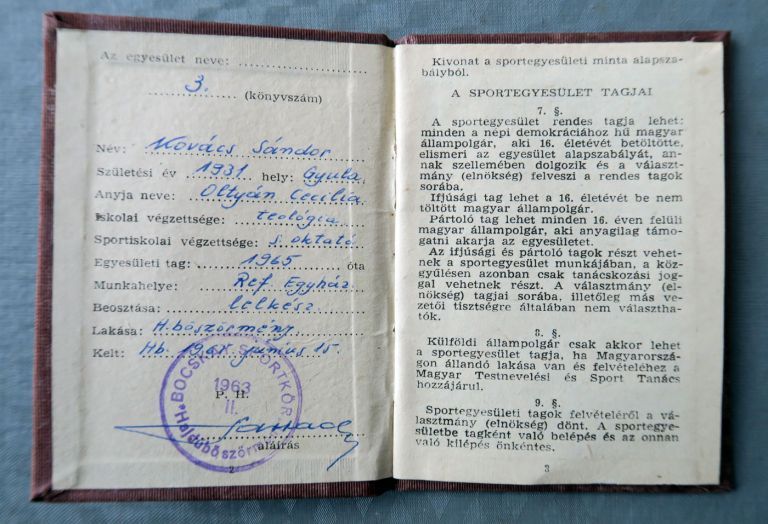 Az egyesület neve: ..................
3. (könyvszám)
Név: Kovács Sándor
Születési év 1931. hely: Gyula
Anyja neve: Oltyán Cecilia
Iskolai végzettsége: teológia
Sportiskolai végzettsége: s. oktató
Egyesületi tag: 1965 óta
Munkahelye: Ref. Egyház
Beosztása: lelkész
Lakása: H.böszörmény
Kelt: Hb. junius 15.
BOCSKAI SPORTKÖR
1963
II.
Hajdúböszörmény
P. H.
aláírás
2
Kivonat a sportegyesületi minta alapsza-
bályból.
A SPORTEGYESÜLET TAGJAI
7. §.
A sportegyesület rendes tagja lehet:
minden a népi demokráciához hű magyar
állampolgár, aki 16. életévét betöltötte,
elismeri az egyesület alapszabályát, an-
nak szellemében dolgozik és a választ-
mány (elnökség) felveszi a rendes tagok
sorába.
Ifjúsági tag lehet a 16. életévét be nem
töltött magyar állampolgár.
Pártoló tag lehet minden 16. éven felüli
magyar állampolgár, aki anyagilag támo-
gatni akarja az egyesületet.
Az ifjúsági és pártoló tagok részt vehet-
nek a sportegyesület munkájában, a köz-
gyűlésen azonban csak tanácskozási jog-
gal vehetnek részt. A választmány (el-
nökség) tagjai sorába, illetőleg más ve-
zetői tisztségre általában nem választha-
tók.
8. §.
Külföldi állampolgár csak akkor lehet
a sportegyesület tagja, ha Magyarorszá-
gon állandó lakása van és felvételéhez a
Magyar Testnevelési és Sport Tanács
hozzájárul.
9. §.
Sportegyesületi tagok felvételéről a vá-
lasztmány (elnökség) dönt. A sportegye-
sületbe tagként való belépés és az onnan
való kilépés önkéntes.
3